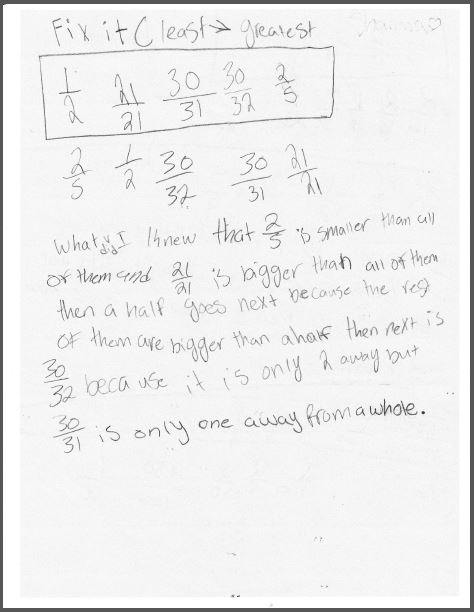 Fix it ( least → greatest
1/2 21/21 30/31 30/32 2/5
2/5 1/2 30/32 30/31 21/21
What I did I knew that 2/5 is smaller than all
of them and 21/21 is bigger than all of them
then a half goes next because the rest
of them are bigger than a half then next is
30/32 because it is only 2 away but
30/31 is only one away from a whole.